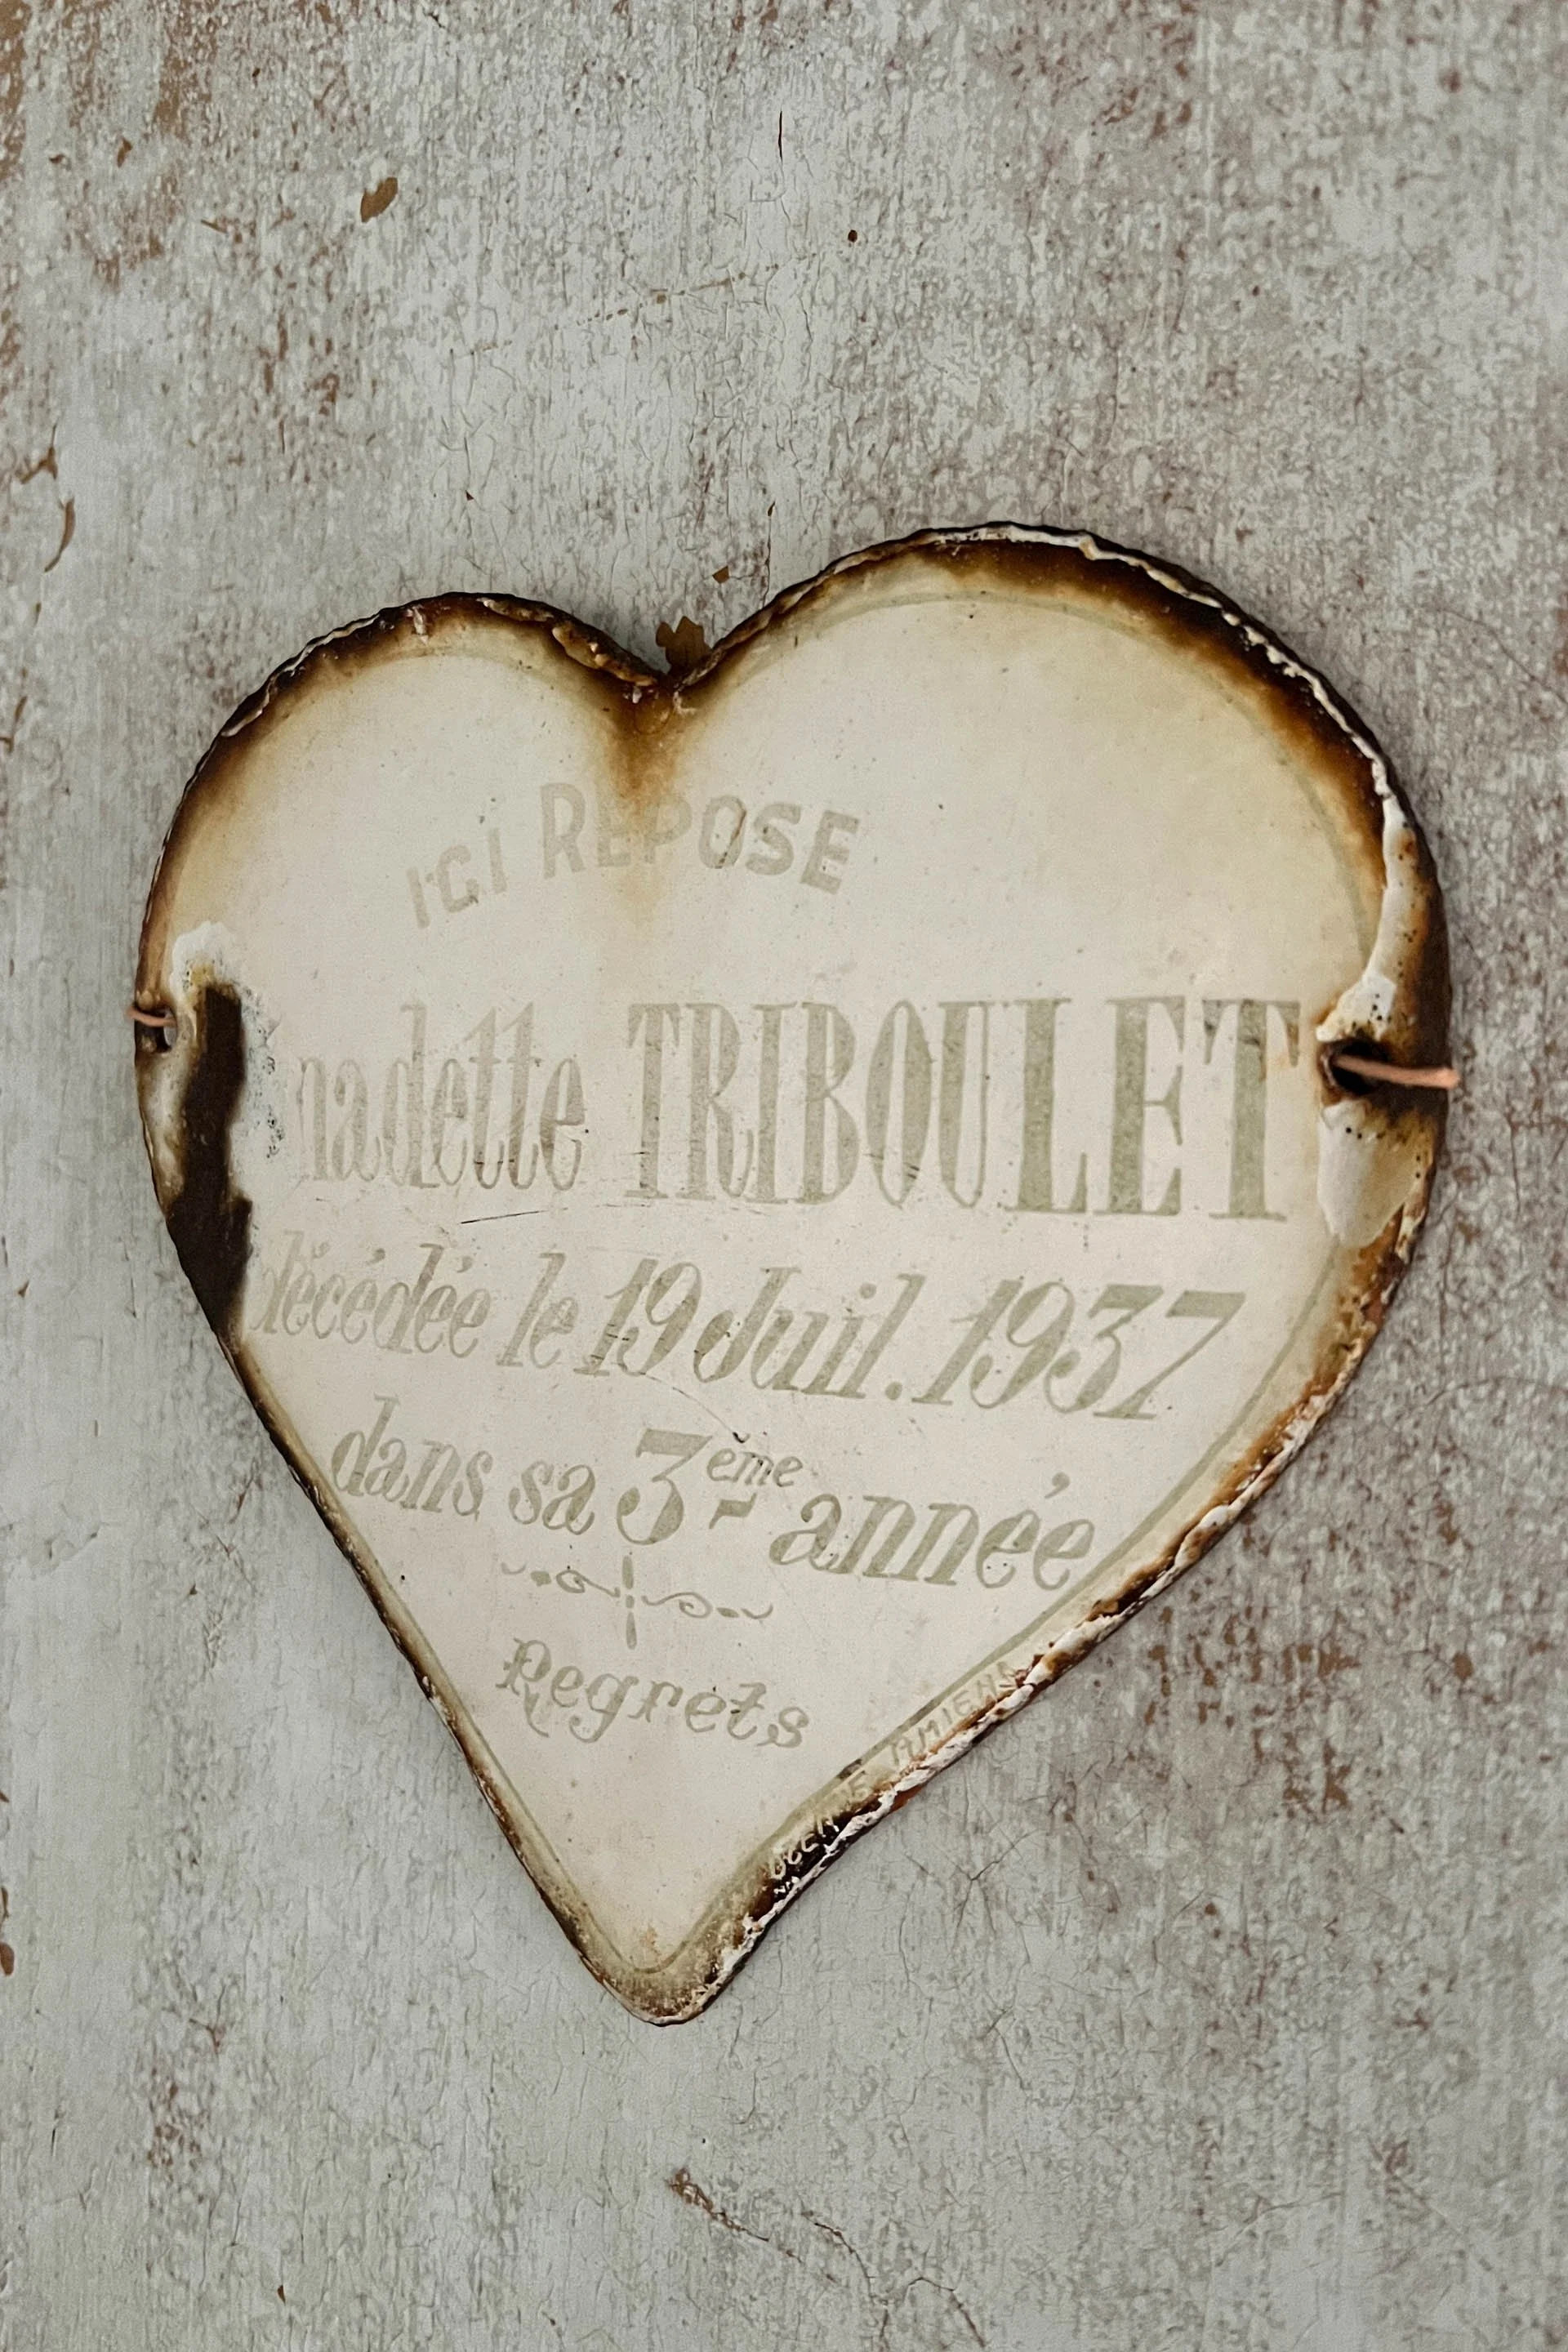 ICI REPOSE
nadette TRIBOULET
décédée le 19 Juil. 1937
dans sa 3ème année
Regrets
AMIENS